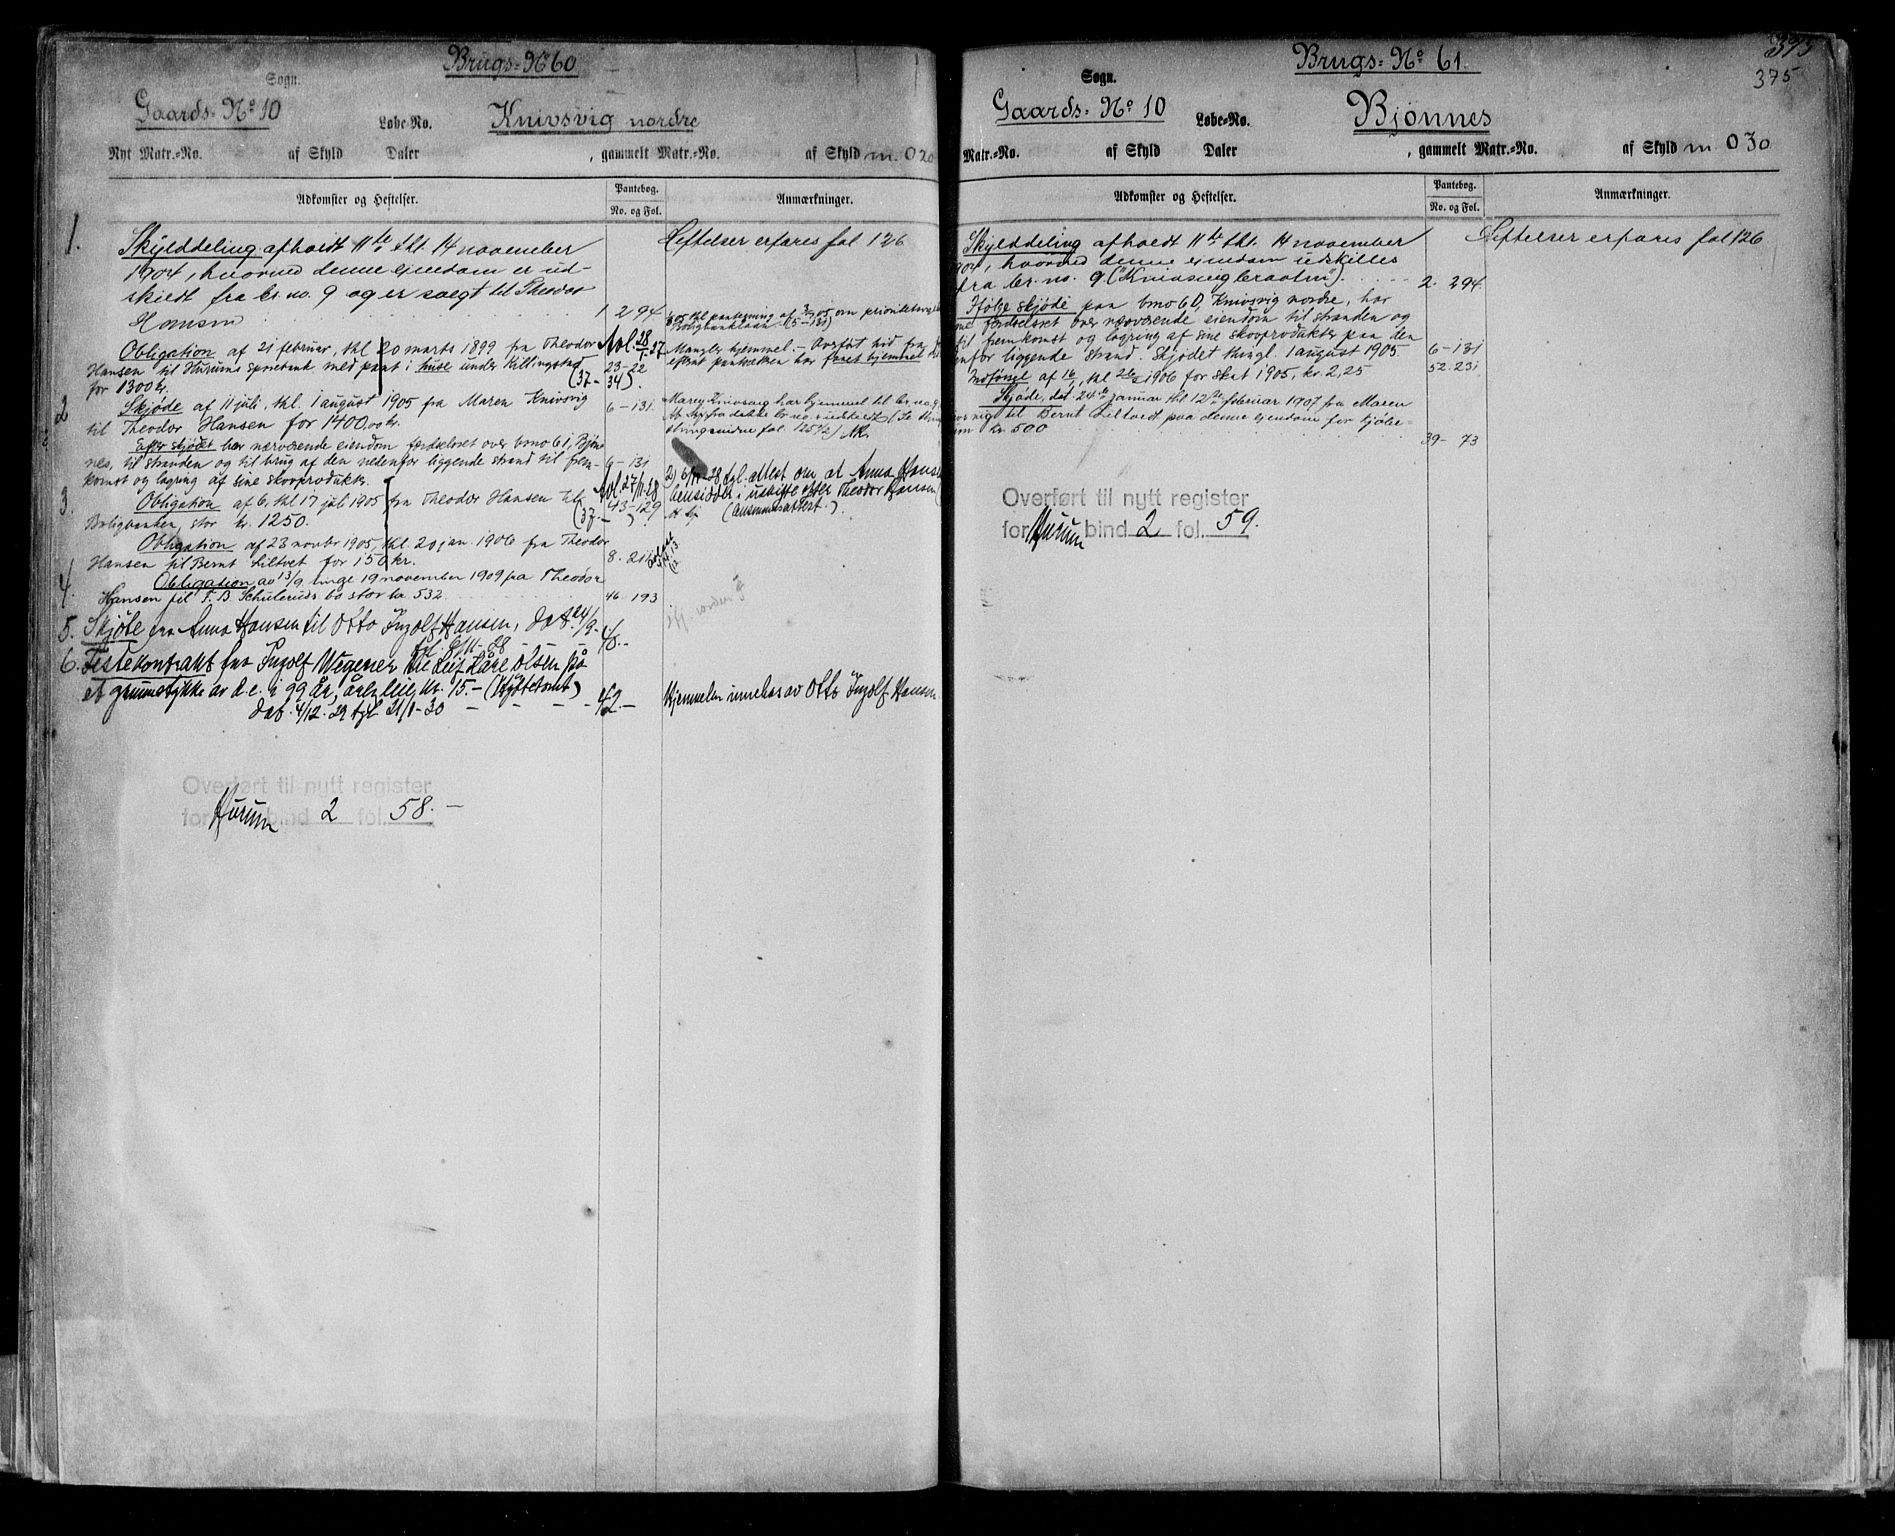 Brugs-No 60
Sogn.
Gaards-No 10
Løbe-No.
Knivsvig nordre
Nyt Matr.-No. af Skyld Daler , gammelt Matr.-No. af Skyld m. 0 20
Adkomster og Heftelser.
Pantebog.
No. og Fol.
Anmærkninger.
1.
Skylddeling afholdt 11te thl. 14 november
1904, hvorved denne eiendom er ud-
skildt fra br. no. 9 og er solgt til Theodor
Hansen 1 294
Heftelser erfares fol 126
Obligation af 21 februar, thl 20 marts 1899 fra Theodor
Hansen til Hurums sparebank med pant i huse under Killingstad
for 1300 kr.
23-22
(37-34).
Mangler hjemmel.
2
Skjøde af 11 juli, thl. 1 august 1905 fra Maren Knivsvig
til Theodor Hansen for 1400.00 kr.
6-131
Efter skjødet har nærværende eiendom færdselsret over bno 61, Bjøn-
nes, til stranden og til brug af den nedenfor liggende strand til frem-
komst og lagring af sine skovprodukter.
6-131
3.
Obligation af 6, thl 17 juli 1905 fra Theodor Hansen til
Boligbanken, stor kr. 1250.
Avl. 27/11-28
43-129
2) 6/11-28 tgl. attest om at Anna Hansen
hensidder i uskifte efter Theodor Hansen
(Ansennesattest.)
Obligation af 23 novbr 1905, thl. 20 jan. 1906 fra Theodor
Hansen til Bernt Liltvet for 150 kr.
8. 211
4.
Obligation av 13/9 tinge 19 november 1909 fra Theodor
Hansen til F. B. Schuleruds bo stor kr 532
46 193
5. Skjøte fra Anna Hansen til Otto Ingolf Hansen, dat. 24/9-
tgl. 6/11-28
48.-
6. Festekontrakt fra Ingolf Wegener til Leif Kåre Olsen på
et grunnstykke av d.e. i 99 år, årlig leie kr. 15.- (Hyttetomt)
dat. 4/12-29 tgl 21/1-30
52.-
Hjemmelen innehas av Otto Ingolf Hansen
Overført til nytt register
for Hurum bind 2 fol. 58.-
375
375
Brugs-No 61.
Sogn.
Gaards-No 10
Løbe-No.
Bjønnes
Matr.-No. af Skyld Daler , gammelt Matr.-No. af Skyld m 0 30
Adkomster og Heftelser.
Pantebog.
No. og Fol.
Anmærkninger.
Skylddeling afholdt 11te thl. 14 november
904, hvorved denne eiendom udskilles
fra br. no. 9 ("Knivsvigbraaten")
2. 294
Heftelser erfares fol 126
Ifølge skjøde paa bno 60, Knivsvig nordre, har
færdselsret over nærværende eiendom til stranden og
til fremkomst og lagring af sine skovprodukter paa den
enfor liggende strand. Skjødet thingl. 1 august 1905
6-131
Indførsel af 16/1, thl 26/2 1906 for skat 1905, kr. 2,25
52. 231
Skjøde, dat. 24de januar thl 12te februar 1907 fra Maren
vig til Bernt Liltvedt paa denne eiendom for kjøbe-
um kr. 500
39- 73
Overført til nytt register
for Hurum bind 2 fol. 59.